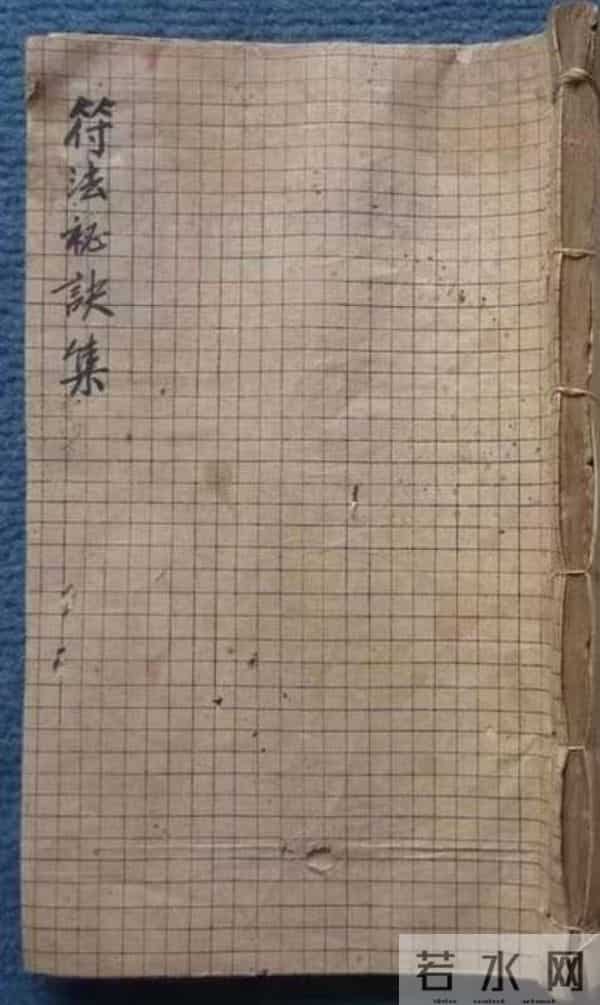 符法祕訣集
若水网